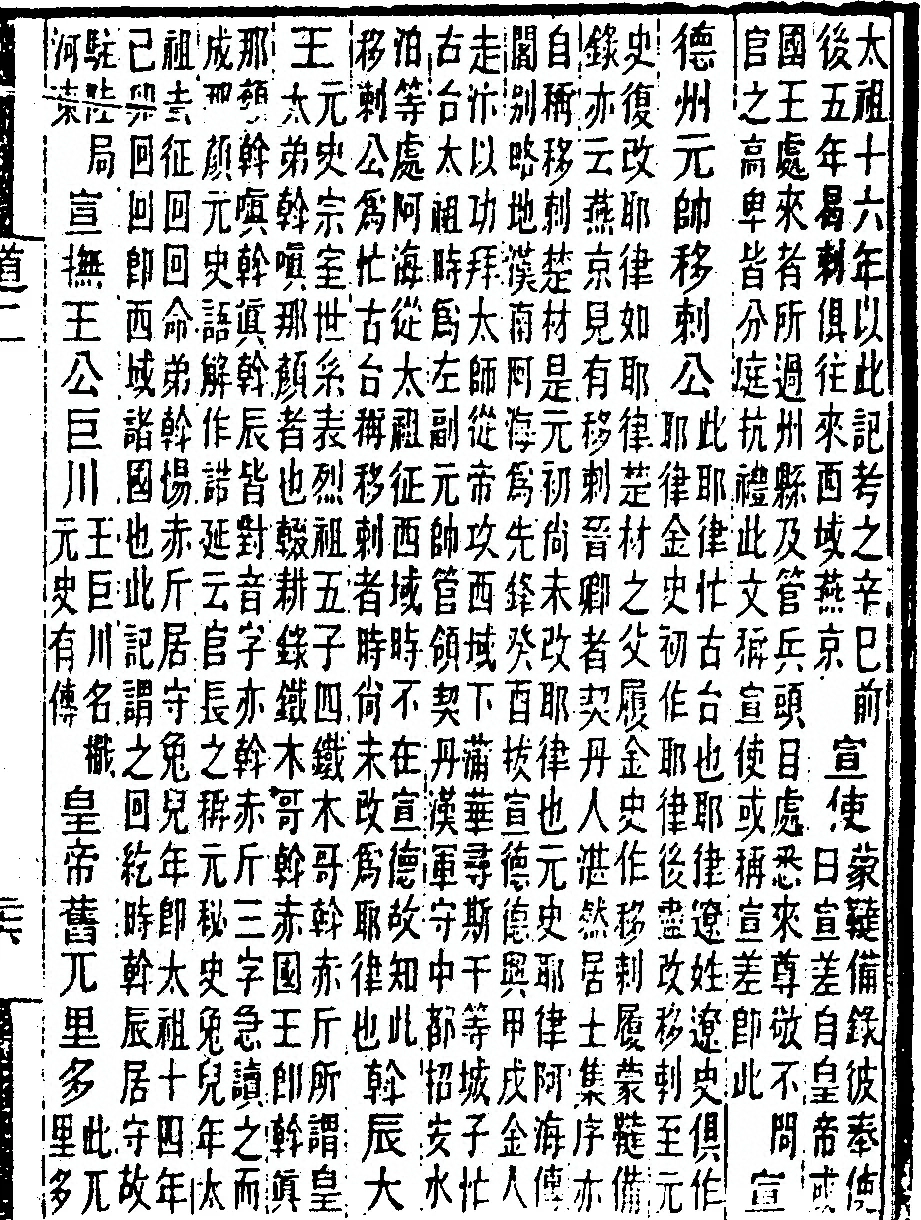 太祖十六年以此記考之辛巳前
後五年曷剌俱往來西域燕京
宣使
蒙韃備錄彼奉使
曰宣差自皇帝或
國王處來者所過州縣及管兵頭目處悉來尊敬不問
官之高卑皆分庭抗禮此文稱宣使或稱宣差即此
宣
德州元帥移剌公
此耶律忙古台也耶律遼姓遼史俱作
耶律金史初作耶律後盡改移剌至元
史復改耶律如耶律楚材之父履金史作移剌履蒙韃備
錄亦云燕京見有移剌晉卿者契丹人湛然居士集序亦
自稱移剌楚材是元初尚未改耶律也元史耶律阿海傳
閣別略地漠南阿海為先鋒癸酉拔宣德德興甲戌金人
走汴以功拜太師從帝攻西域下蒲華尋斯干等城子忙
古台太祖時為左副元帥管領契丹漢軍守中都招安水
泊等處阿海從太祖征西域時不在宣德故知此
移剌公為忙古台稱移剌者時尚未改為耶律也
斡辰大
王
元史宗室世系表烈祖五子四鐵木哥斡赤斤所謂皇
太弟斡嗔那顏者也輟耕錄鐵木哥斡赤國王即斡真
那顏斡嗔斡真斡辰皆對音字亦斡赤斤三字急讀之而
成那顏元史語解作諾延云官長之稱元秘史兔兒年太
祖去征回回命弟斡惕赤斤居守兔兒年即太祖十四年
已卯回回即西域諸國也此記謂之回紇時斡辰居守故
駐陸局
河東
宣撫王公巨川
王巨川名檝
元史有傳
皇帝舊兀里多
此兀
里多